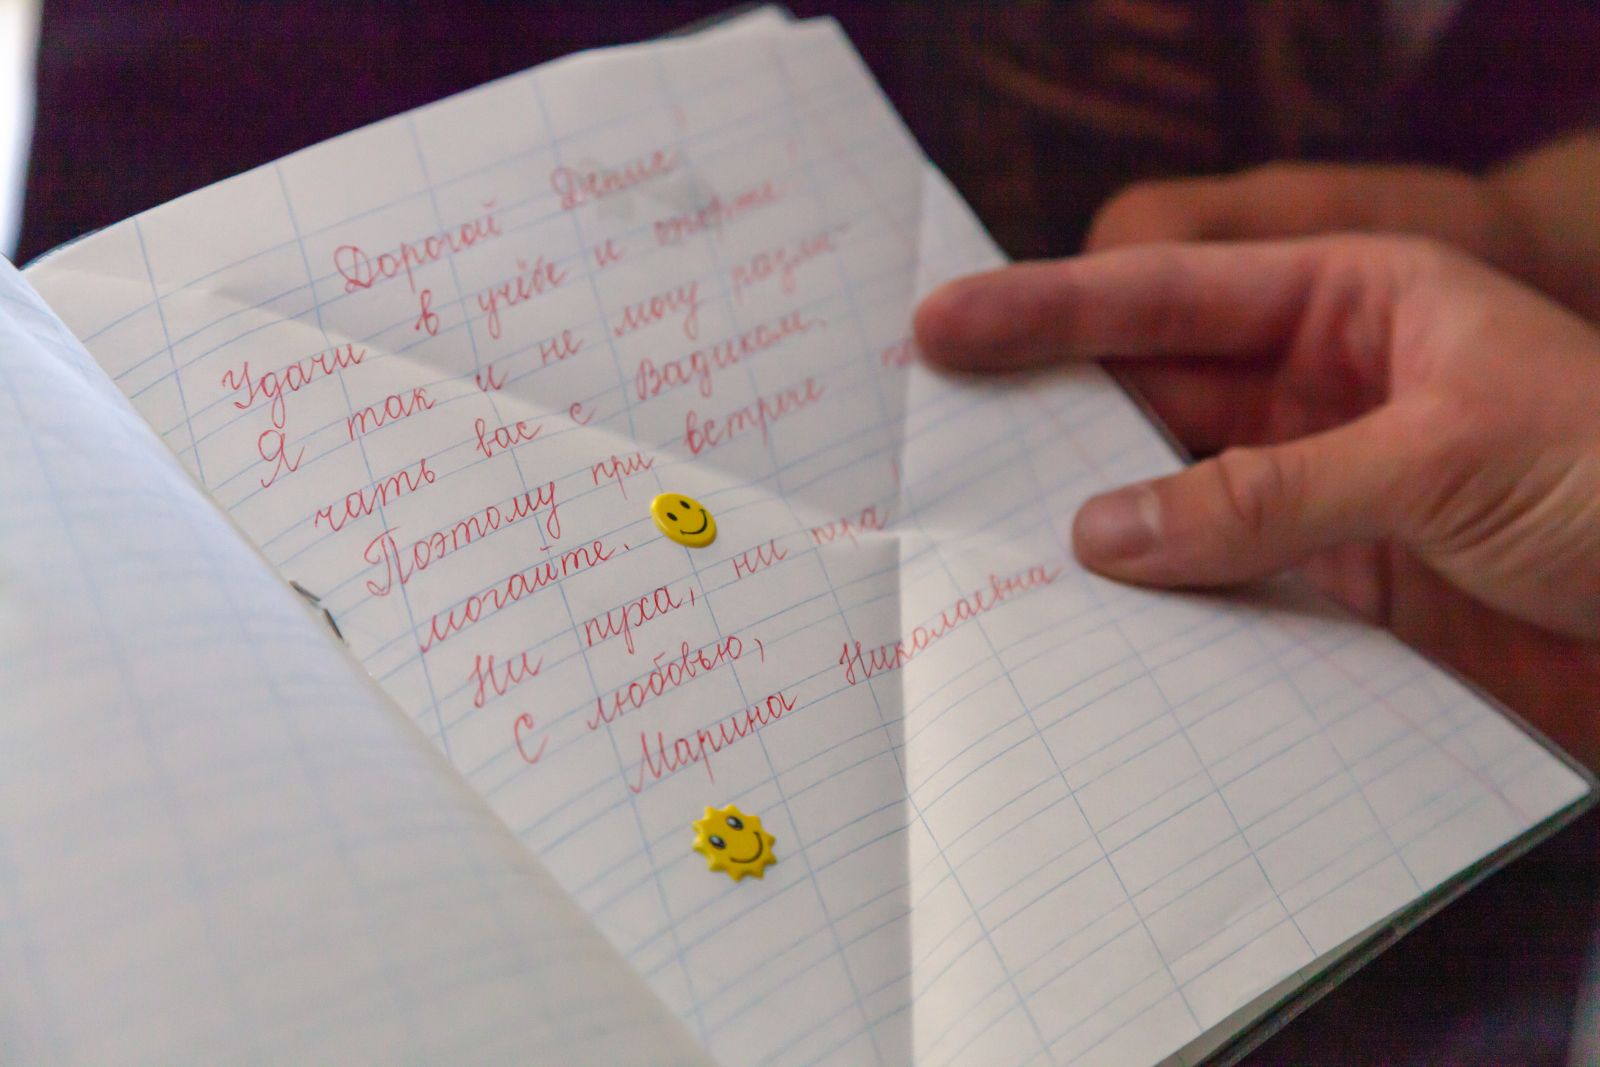 Дорогой Денис
Удачи в учёбе и спорте.
Я так и не могу разли-
чать вас с Вадиком.
Поэтому при встрече по
могайте.
Ни пуха, ни пуха!
С любовью,
Марина Николаевна